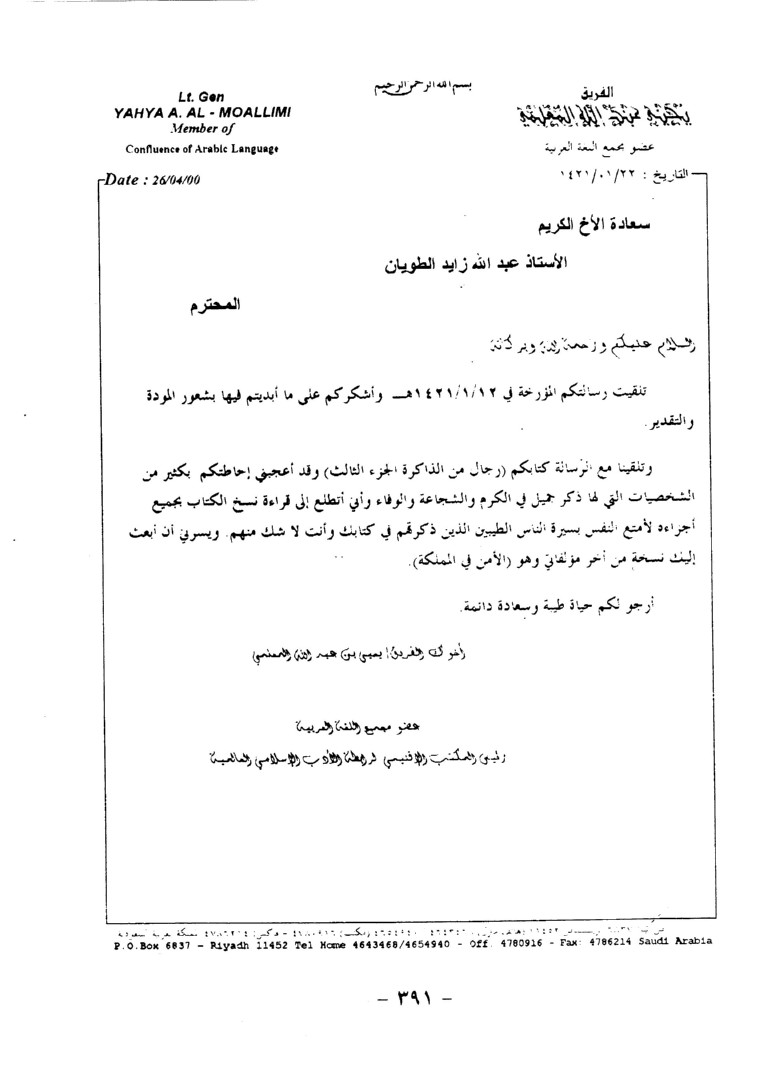 بسم الله الرحمن الرحيم
Lt. Gen
YAHYA A. AL - MOALLIMI
Member of
Confluence of Arabic Language
Date : 26/04/00
الفريق
يحيى عبد الله المعلمي
عضو مجمع اللغة العربية
التاريخ : ١٤٢١/٠١/٢٢
سعادة الأخ الكريم
الأستاذ عبد الله زايد الطويان
المحترم
السلام عليكم ورحمة الله وبركاته
تلقيت رسالتكم المؤرخة في ١٤٢١/١/١٢هـ وأشكركم على ما أبديتم فيها بشعور المودة
والتقدير.
وتلقينا مع الرسالة كتابكم (رجال من الذاكرة الجزء الثالث) وقد أعجبني إحاطتكم بكثير من
الشخصيات التي لها ذكر جميل في الكرم والشجاعة والوفاء وأني أتطلع إلى قراءة نسخ الكتاب بجميع
أجزاءه لأمتع النفس بسيرة الناس الطيبين الذين ذكرتهم في كتابك وأنت لا شك منهم. ويسرني أن أبعث
إليك نسخة من أخر مؤلفاتي وهو (الأمن في المملكة).
أرجو لكم حياة طيبة وسعادة دائمة.
أخوك الفريق/ يحيى بن عبد الله المعلمي
عضو مجمع اللغة العربية
رئيس المكتب الإقليمي لرابطة الأدب الإسلامي العالمية
P.O.Box 6837 – Riyadh 11452 Tel Home 4643468/4654940 - Off. 4780916 - Fax: 4786214 Saudi Arabia
– ٣٩١ –